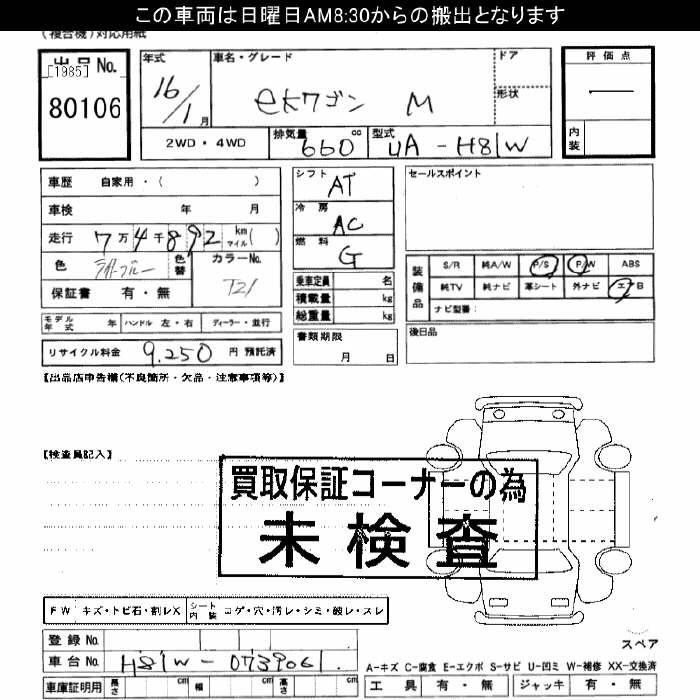 この車両は日曜日AM8:30からの搬出となります
(複合機)対応用紙
出品 No.
[1985]
80106
年式 16/1 月
車名・グレード ekワゴン M
ドア
形状
2WD・4WD
排気量 660 cc
型式 UA-H81W
評価点
―
内装
車歴 自家用・( )
車検 年 月
走行 7万4千892 km マイル( )
色 ライトブルー 色替
カラーNo. T21
保証書 有・無
シフト AT
冷房 AC
燃料 G
セールスポイント
装備品
S/R 純A/W P/S P/W ABS
純TV 純ナビ 革シート 外ナビ エアB
ナビ型番:
乗車定員 名
積載量 kg
総重量 kg
モデル年式 年 ハンドル 左・右 ディーラー・並行
書類期限
月 日
後日品
リサイクル料金 9,250 円 預託済
【出品店申告欄(不良箇所・欠品・注意事項等)】
【検査員記入】
買取保証コーナーの為
未検査
FW キズ・トビ石・割レX シート内装 コゲ・穴・汚レ・シミ・破レ・スレ
登録 No.
車台 No. H81W-0739061
車庫証明用 長さ cm 幅 cm 高さ cm
スペア
A-キズ C-腐食 E-エクボ S-サビ U-凹ミ W-補修 XX-交換済
工具 有・無 ジャッキ 有・無